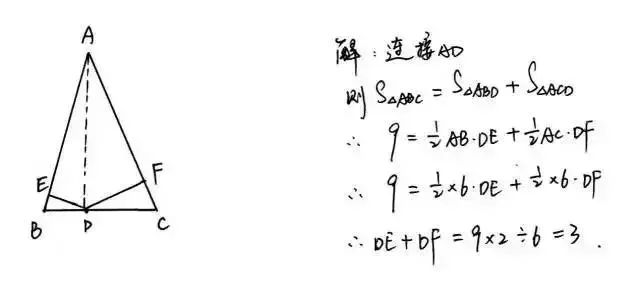 A
E
F
B
D
C
解：连接AD
则 S△ABC = S△ABD + S△ACD
∴ 9 = 1/2 AB·DE + 1/2 AC·DF
∴ 9 = 1/2 × 6·DE + 1/2 × 6·DF
∴ DE + DF = 9 × 2 ÷ 6 = 3 .